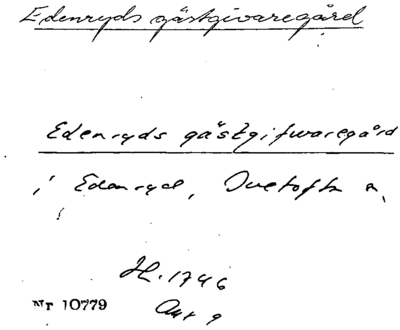 Edenryds gästgivaregård
Edenryds gästgifwaregård
i Edenryd, Ivetofta s,
Jfr. 1746
Nr 10779
Akt 9